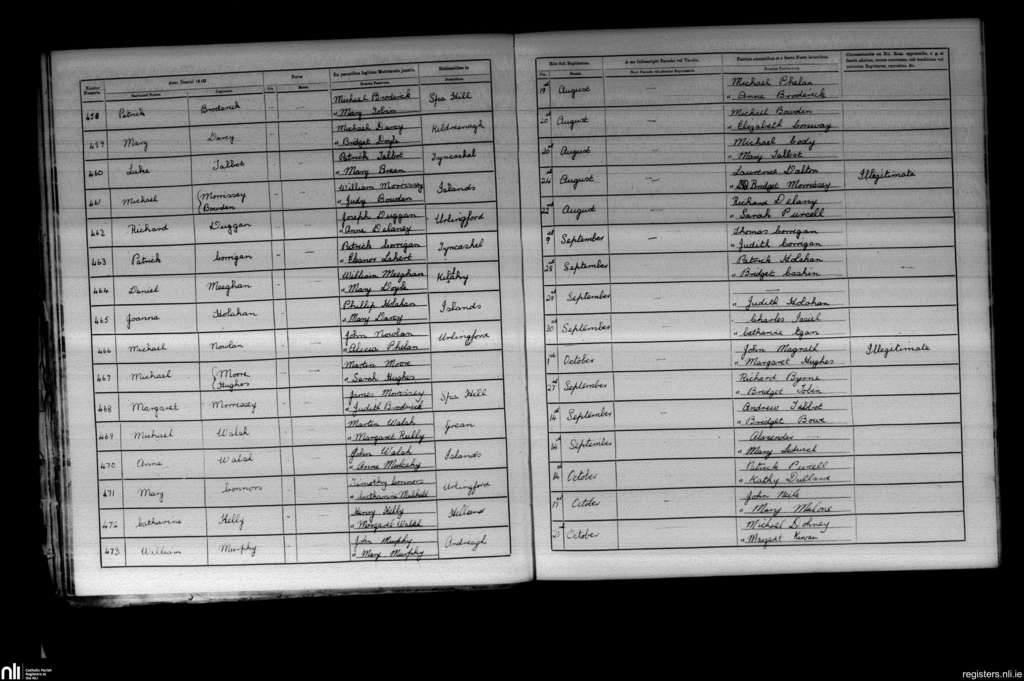 Anno Domini 18
Numerus
Baptizati Nomen
Cognomen
Natus
Die.
Mense.
Ex parentibus legitimo Matrimonio junctis.
Habitantibus in
458 Patrick Broderick Michael Broderick Spa Hill
" Mary Tobin
459 Mary Darcy Michael Darcy Kildrenagh
" Bridget Doyle
460 Luke Talbot Patrick Talbot Tyncashel
" Mary Breen
461 Michael { Morrissey William Morrissey Islands
Bowden " Judy Bowden
462 Richard Duggan Joseph Duggan Urlingford
" Anne Delaney
463 Patrick Corrigan Patrick Corrigan Tyncashel
" Eleanor Lahert
464 Daniel Meeghan William Meeghan
" Mary Doyle
465 Joanna Holahan Phillip Holahan Islands
" Mary Darcy
466 Michael Nowlan John Nowlan Urlingford
" Alicia Phelan
467 Michael { Moore Martin Moore
Hughes " Sarah Hughes
468 Margaret Morrissey James Morrissey Spa Hill
" Judith Broderick
469 Michael Walsh Martin Walsh Grean
" Margaret Reilly
470 Anne Walsh John Walsh Islands
" Anne Mulcahy
471 Mary Connors Timothy Connors Urlingford
" Catharine
472 Catharine Kelly Henry Kelly
" Margaret Walsh
473 William Murphy John Murphy
" Mary Murphy
Die.
Mense.
19 August — Michael Phelan
" Anne Broderick
20 August — Michael Bowden
" Elizabeth Conway
20 August — Michael Cody
" Mary Talbot
24 August — Laurence Dalton Illegitimate
" Bridget Morrissey
22 August — Richard Delany
" Sarah Purcell
9 September — Thomas Corrigan
" Judith Corrigan
28 September — Patrick Holahan —
" Bridget Cashin
29 September —
" Judith Holahan
30 September — Charles
" Catharine Egan
1 October — John Magrath Illegitimate
" Margaret Hughes
27 September — Richard Byrne
" Bridget Tobin
14 September — Andrew Talbot
" Bridget Bowe
16 September — Alexander
" Mary
14 October — Patrick Purcell
" Kathy
15 October — John Neile
" Mary Malone
25 October — Michael Delaney
" Margaret Kirwan
nli
Catholic Parish
Registers at
the NLI
registers.nli.ie